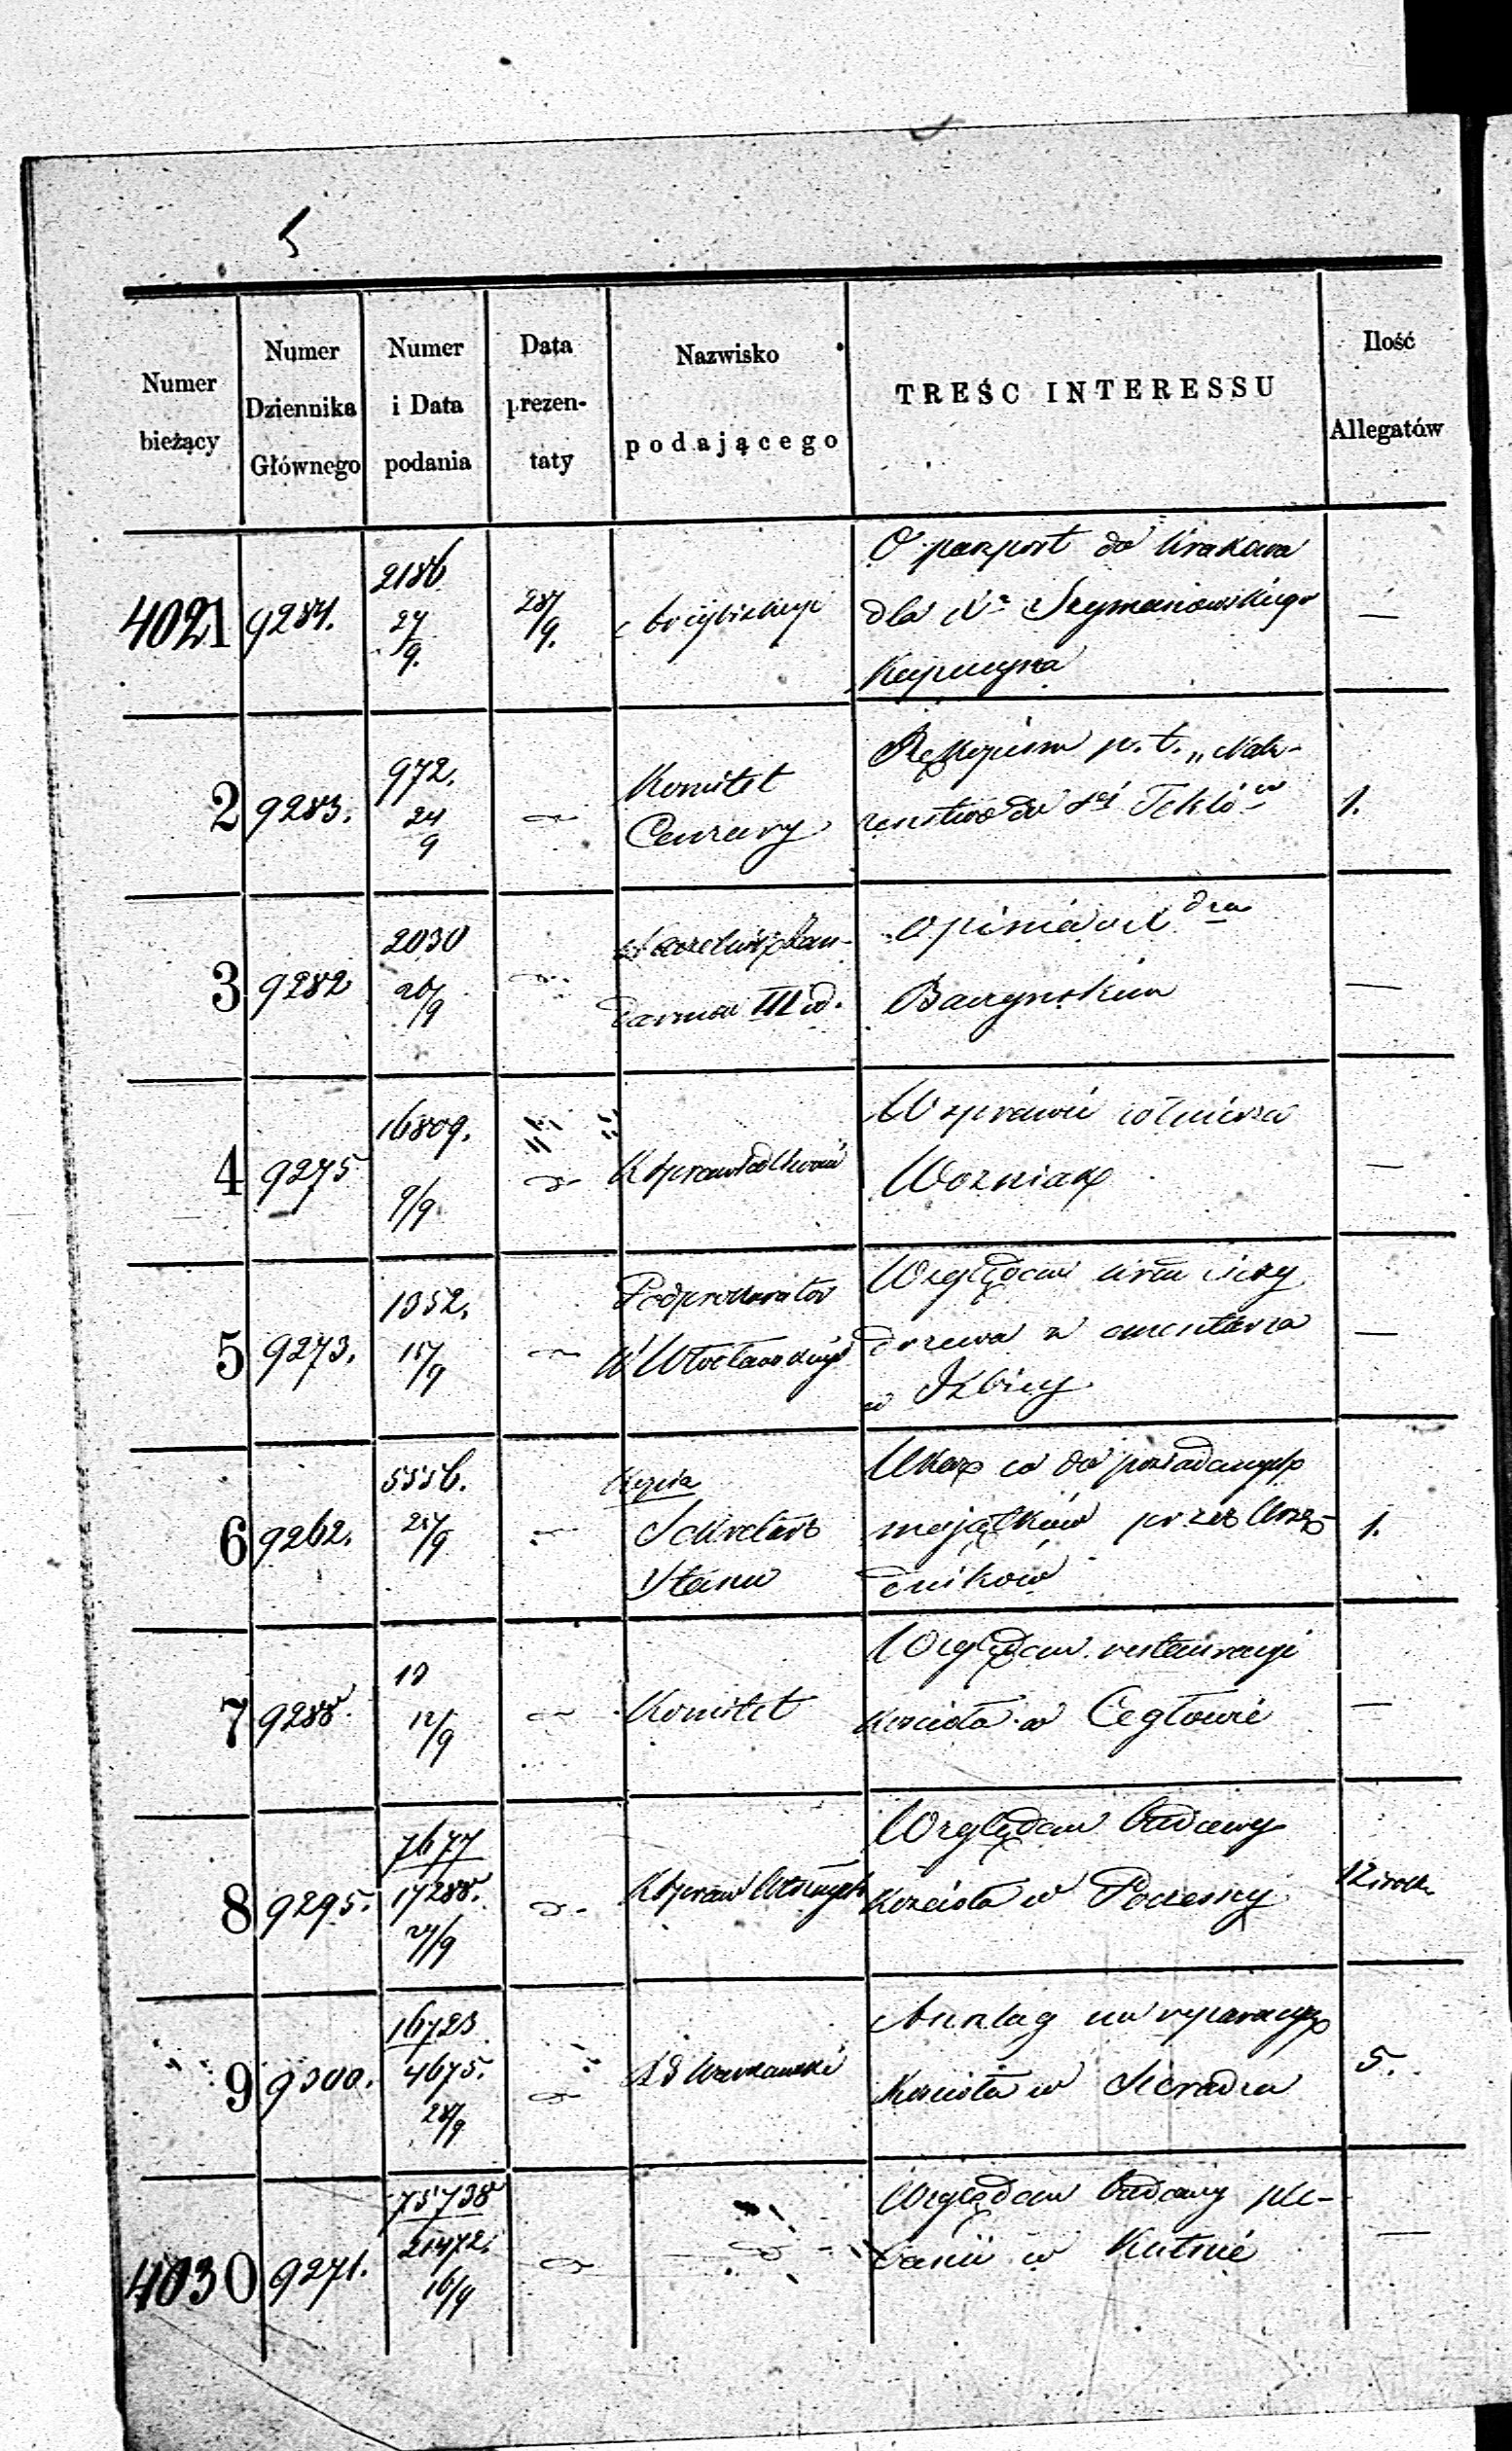 Numer bieżący
Numer Dziennika Głównego
Numer i Data podania
Data prezen-taty
Nazwisko podającego
TREŚC INTERESSU
Ilość Allegatów
4021 9284. 2186 27/9. 28/9.
O paszport do Krakowa
dla Xa Szymanowskiego
Kapucyna
—
2 9283. 972. 24/9
Komitet
Cenzury
Rękopism p. t. „Nabo-
żeństwo do Sej Tekli"
1.
3 9282 2030 20/9
Naczelnik Żan-
darmów III
Opinia o X
Baczynskim
—
4 9275 16809. 9/9
K Sprawiedliwości
W sprawie żołnierza
Wozniak
—
5 9273. 1352. 15/9
Podprokurator
Włocławskiego
Względem
drzewa z cmentarza
w Izbicy
—
6 9262. 5556. 25/9
Kopia
Sekretarz
Stanu
Ukaz co do posiadanych
majątków przez Urzę-
dników
1.
7 9288 13 12/9
Komitet
Względem restauracyi
Kościoła w Cegłowie
—
8 9295. 7677 17288. 27/9
K Spraw Wewnętrznych
Względem budowy
Kościoła w Poczesny
9 9300. 16723 4675. 28/9
Warszawski
Anszlag na reparacyę
Kościoła w Sieradzu
5.
4030 9271. 75738 21472. 16/9
Względem budowy ple-
banii w Kutnie
—